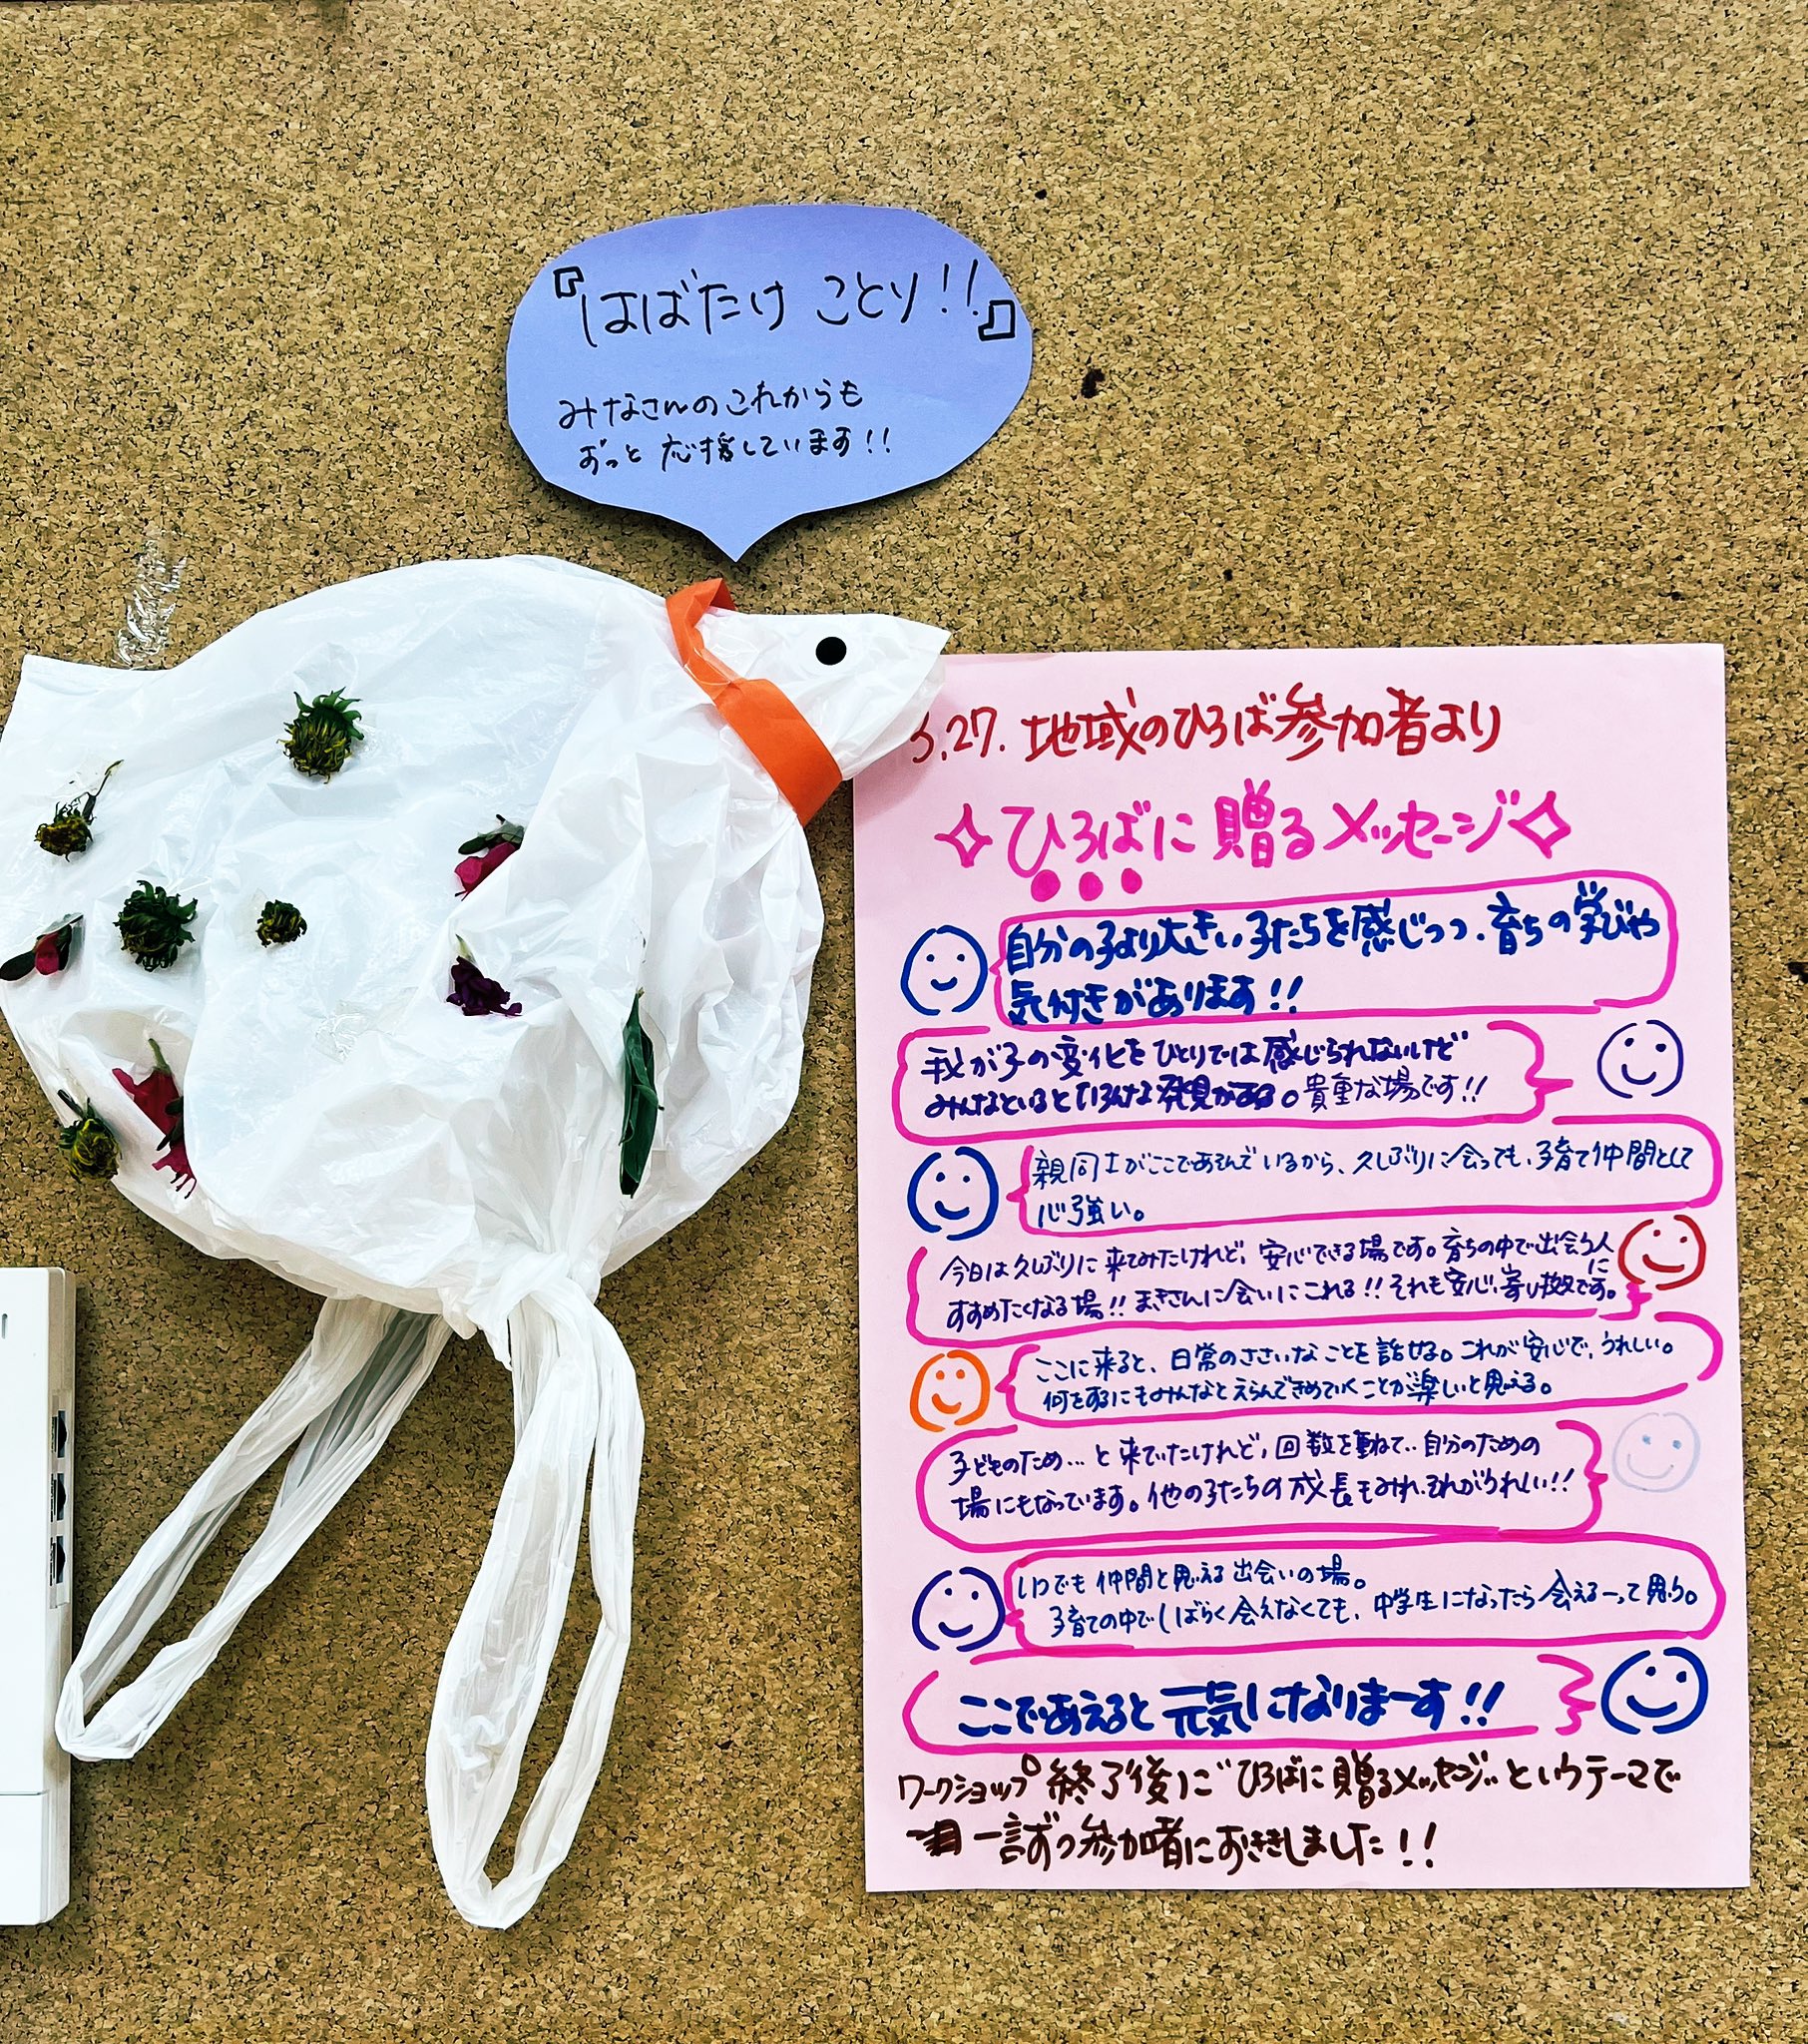 『はばたけ ことり!!』
みなさんのこれからも
ずっと 応援しています!!
3.27. 地域のひろば参加者より
ひろばに 贈る メッセージ
自分の子より大きい子たちを感じつつ、育ちの学びや
気付きがあります!!
我が子の変化をひとりでは感じられないけど
みんなといるといろんな発見がある。貴重な場です!!
親同士がここであそんでいるから、久しぶりに会っても、子育て仲間として
心強い。
今日は久しぶりに来てみたけれど、安心できる場です。育ちの中で出会う人に
すすめたくなる場!! まきさんに会いにこれる!! それも安心、寄り拠です。
ここに来ると、日常のささいなことを話せる。これが安心で、うれしい。
何をするにもみんなとえらんできめていくことが楽しいと思える。
子どものため…と来ていたけれど、回数を重ねて、自分のための
場にもなっています。他の子たちの成長もみれ、それがうれしい!!
いつでも仲間と思える出会いの場。
子育ての中でしばらく会えなくても、中学生になったら会えるーって思う。
ここであえると元気になりまーす!!
ワークショップ終了後に"ひろばに贈るメッセージ"というテーマで
一言ずつ参加者におききしました!!